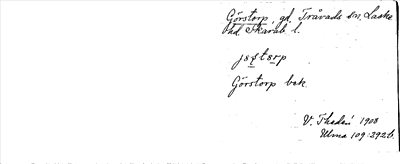 Görstorp, gd. Tråvada sn. Laske
hd. Skarab. l.
jöstorp
Görstorp bek.
V. Thedin 1908
Ulma 109:292 b.